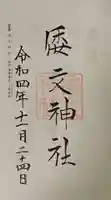 倭文神社
令和四年十一月二十四日